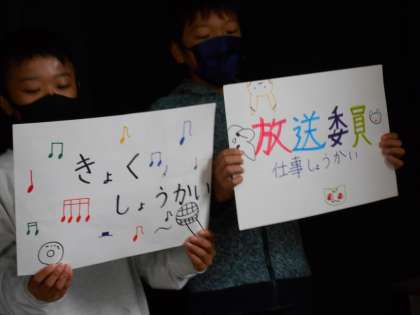 きょく
しょうかい
～
放送委員
仕事しょうかい